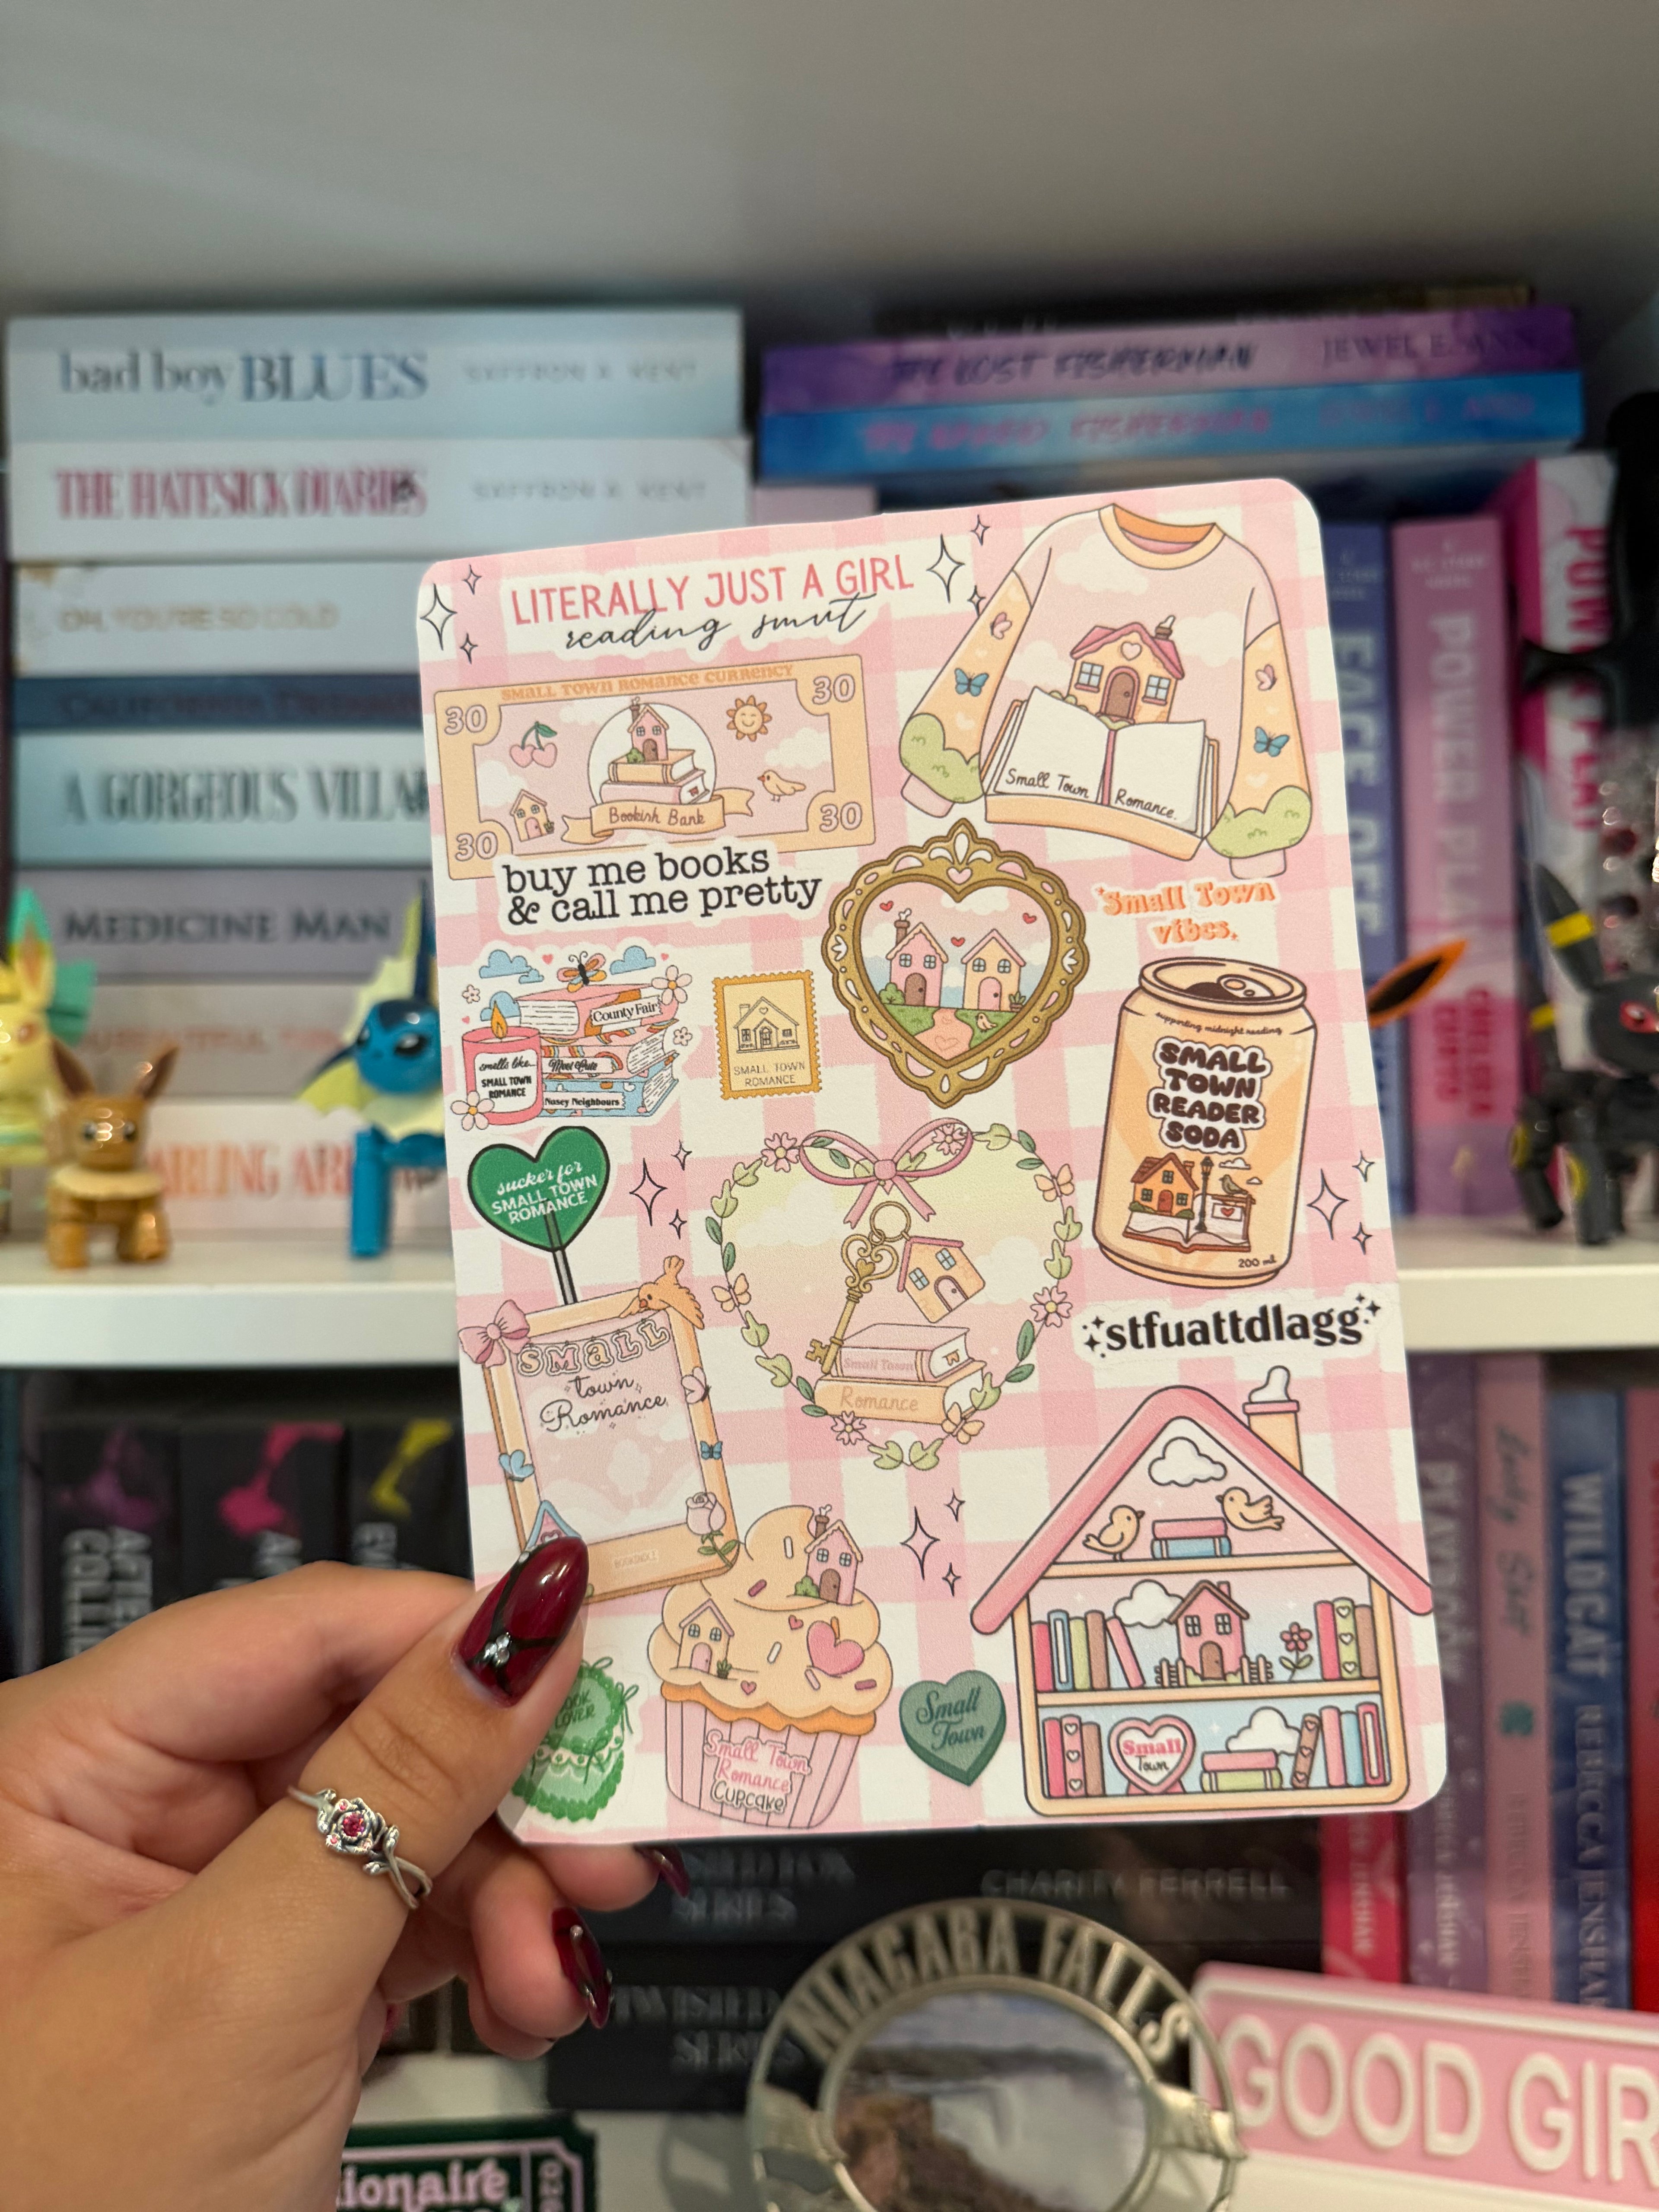 bad boy BLUES SAFFRON A. KENT
THE HATESICK DIARIES SAFFRON A. KENT
OH, YOU'RE SO COLD
CALIFORNIA DREAMIN
A GORGEOUS VILLAI
MEDICINE MAN
DARLING ARR
THE LOST FISHERMAN JEWEL E. ANN
THE NAKED FISHERMAN JEWEL E. ANN
FACE OFF
POWER PLA
LITERALLY JUST A GIRL
reading smut
SMALL TOWN ROMANCE CURRENCY
30
30
Bookish Bank
30
30
Small Town Romance.
buy me books
& call me pretty
Small Town
vibes.
County Fair
Meet Cute
Nosey Neighbours
smells like...
SMALL TOWN
ROMANCE
SMALL TOWN
ROMANCE
supporting midnight reading
SMALL
TOWN
READER
SODA
200 ml
sucker for
SMALL TOWN
ROMANCE
Small Town
Romance
stfuattdlagg
SMALL
town
Romance
BOOKINDLE
OOK
LOVER
Small Town
Romance
CUPCAKE
Small
Town
Small
Town
AFTE
COLL
WILDCAT REBECCA JENSHAK
CHARITY FERRELL
SERIES
TWISTED
SERIES
NIAGARA FALLS
GOOD GIR
ionaire